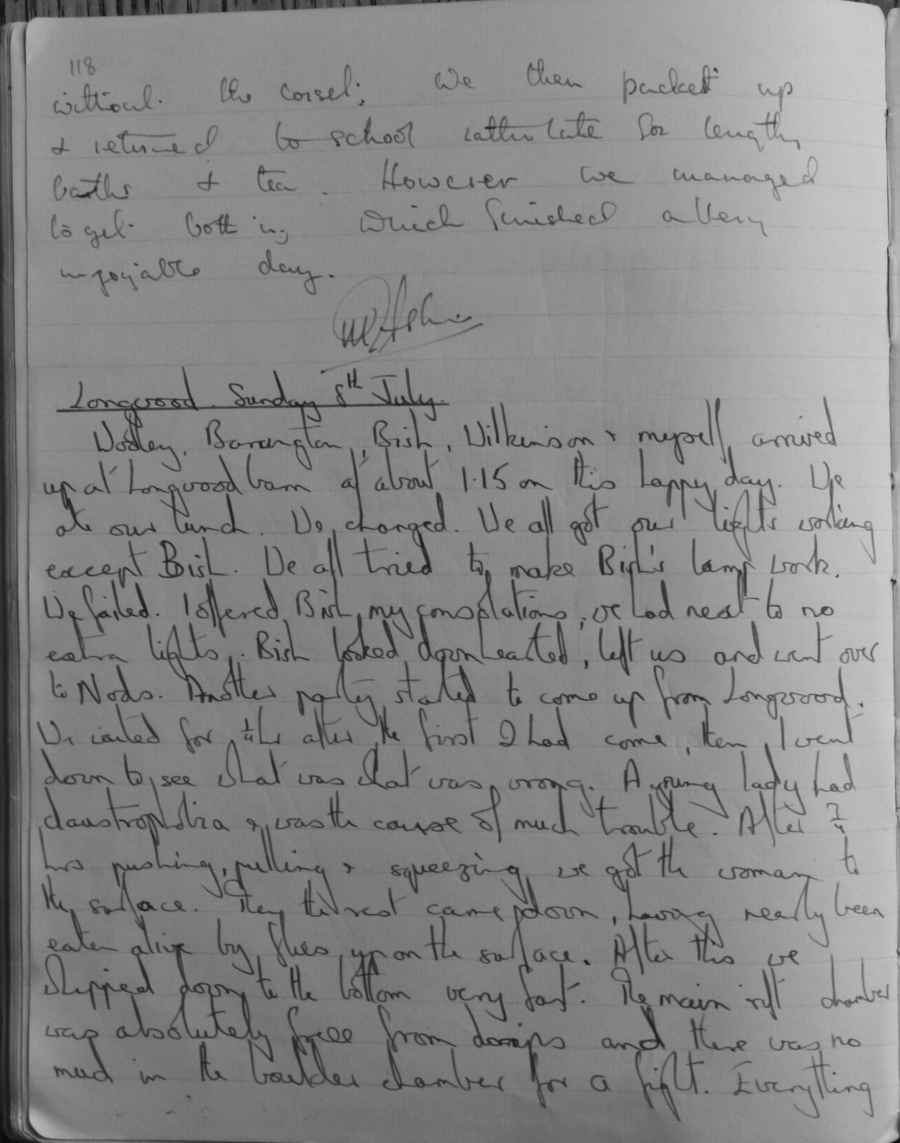 118
without the corset; We then packet up
& returned to school rather late for length
baths & tea. However we managed
to get both in, which finished a very
injoyable day.
Longwood Sunday 8th July.
Wooley, Barington, Bish, Wilkinson & myself, arrived
up at Longwood barn at about 1.15 on this happy day. We
ate our lunch. We changed. We all got our lights working
except Bish. We all tried to make Bish's lamp work.
We failed. I offered Bish my consolations, we had next to no
extra lights. Bish looked downhearted, left us and went over
to Nods. Another party started to come up from Longwood.
We waited for ¼hr after the first 2 had come, then I went
down to see what was what was wrong. A young lady had
claustrophobia & was the cause of much trouble. After ¾
hrs pushing, pulling & squeezing we got the woman to
the surface. Then the rest came down, having nearly been
eaten alive by flies up on the surface. After this we
slipped down to the bottom very fast. The main rift chamber
was absolutely free from drips and there was no
mud in the boulder chamber for a fight. Everything